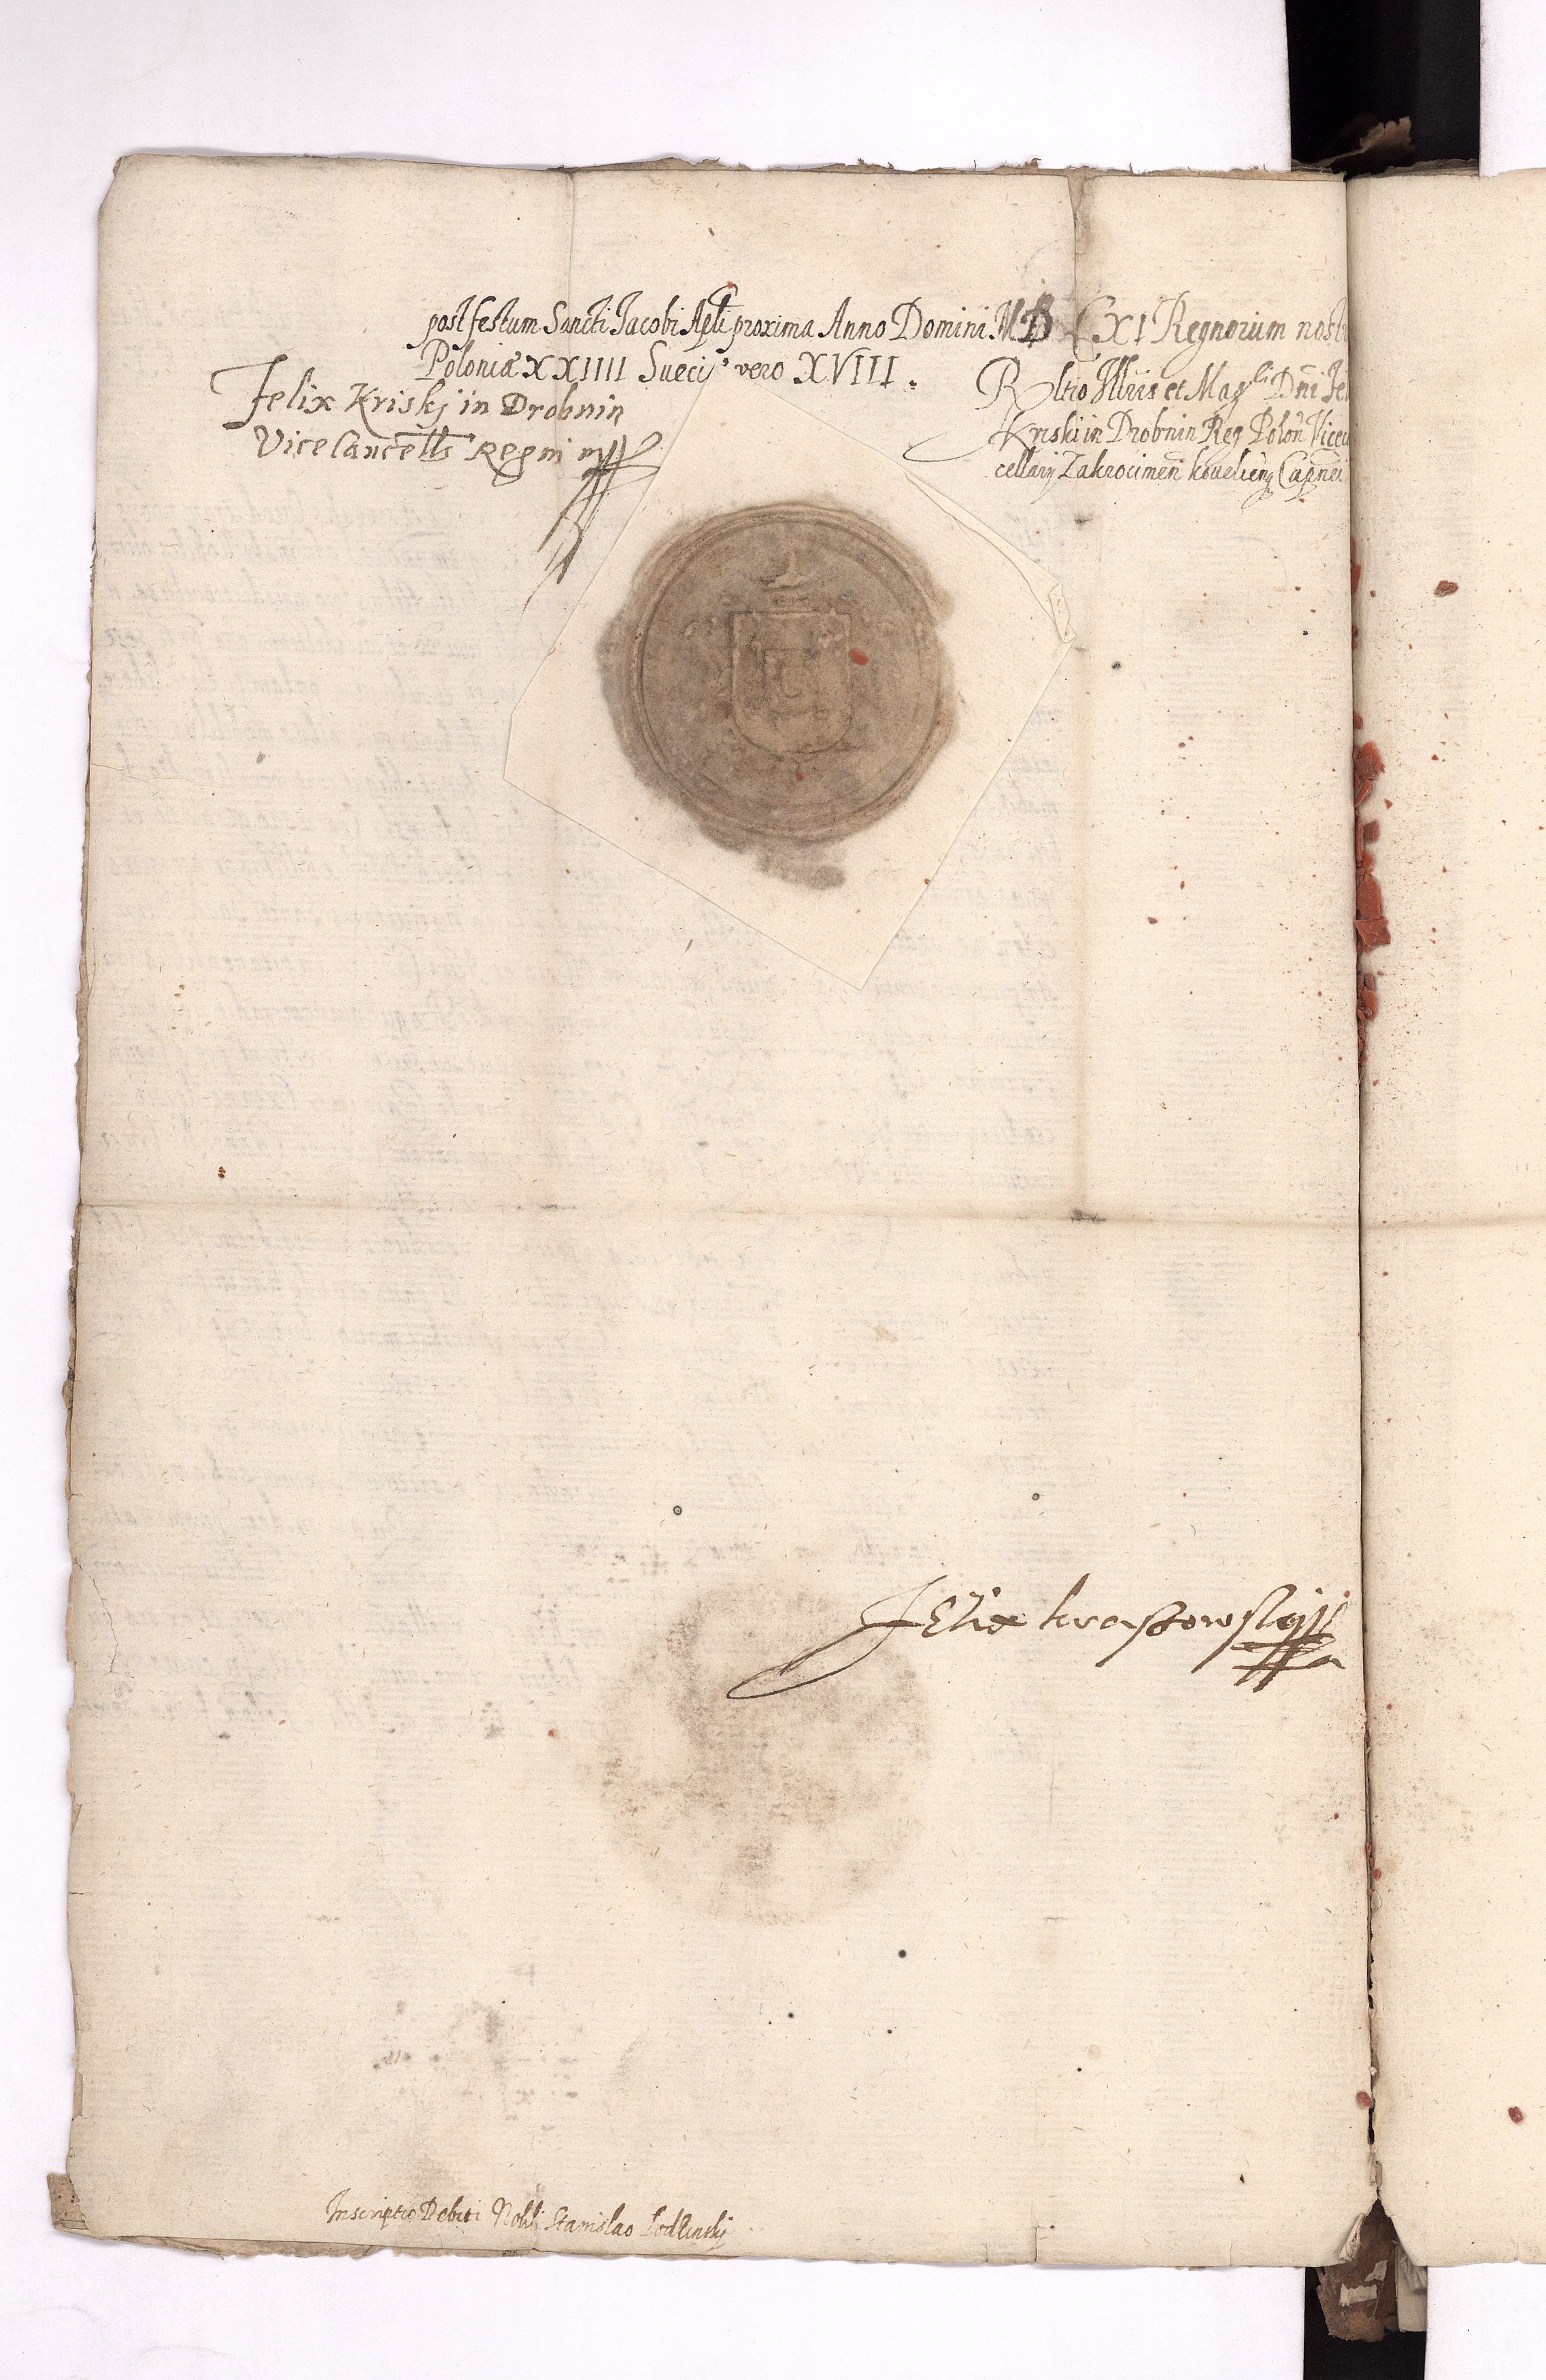 post festum Sancti Jacobi Apli proxima Anno Domini. M D CXI Regnorum nostr
Poloniæ XXIIII Sueciȩ vero XVIII.
Felix Kriskj in Drobnin
Vice Cancells Regni mpp
Rltio Illris et Magci Dni Fe
Kriski in Drobnin Reg Polon Vicec
cellarij Zakrocimen Capnei
Felix
Inscriptio Debiti Nobli Stanislao